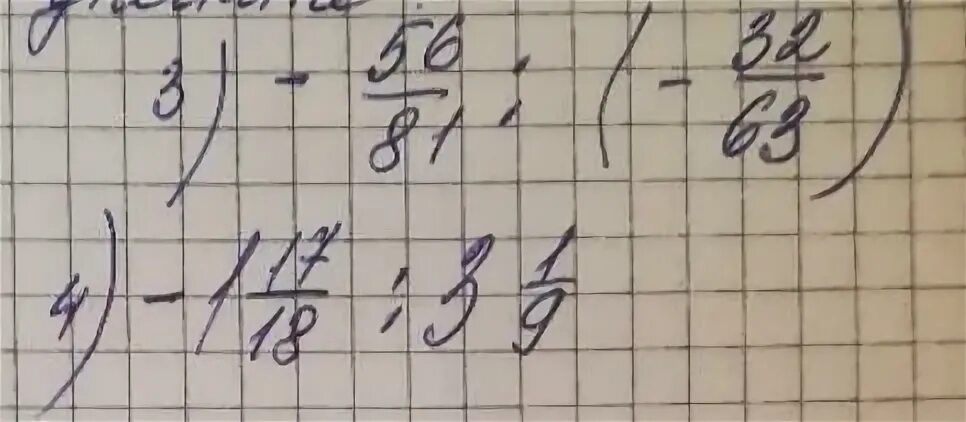 3) - 56/81 : (- 32/63)
4) - 1 17/18 : 3 1/9